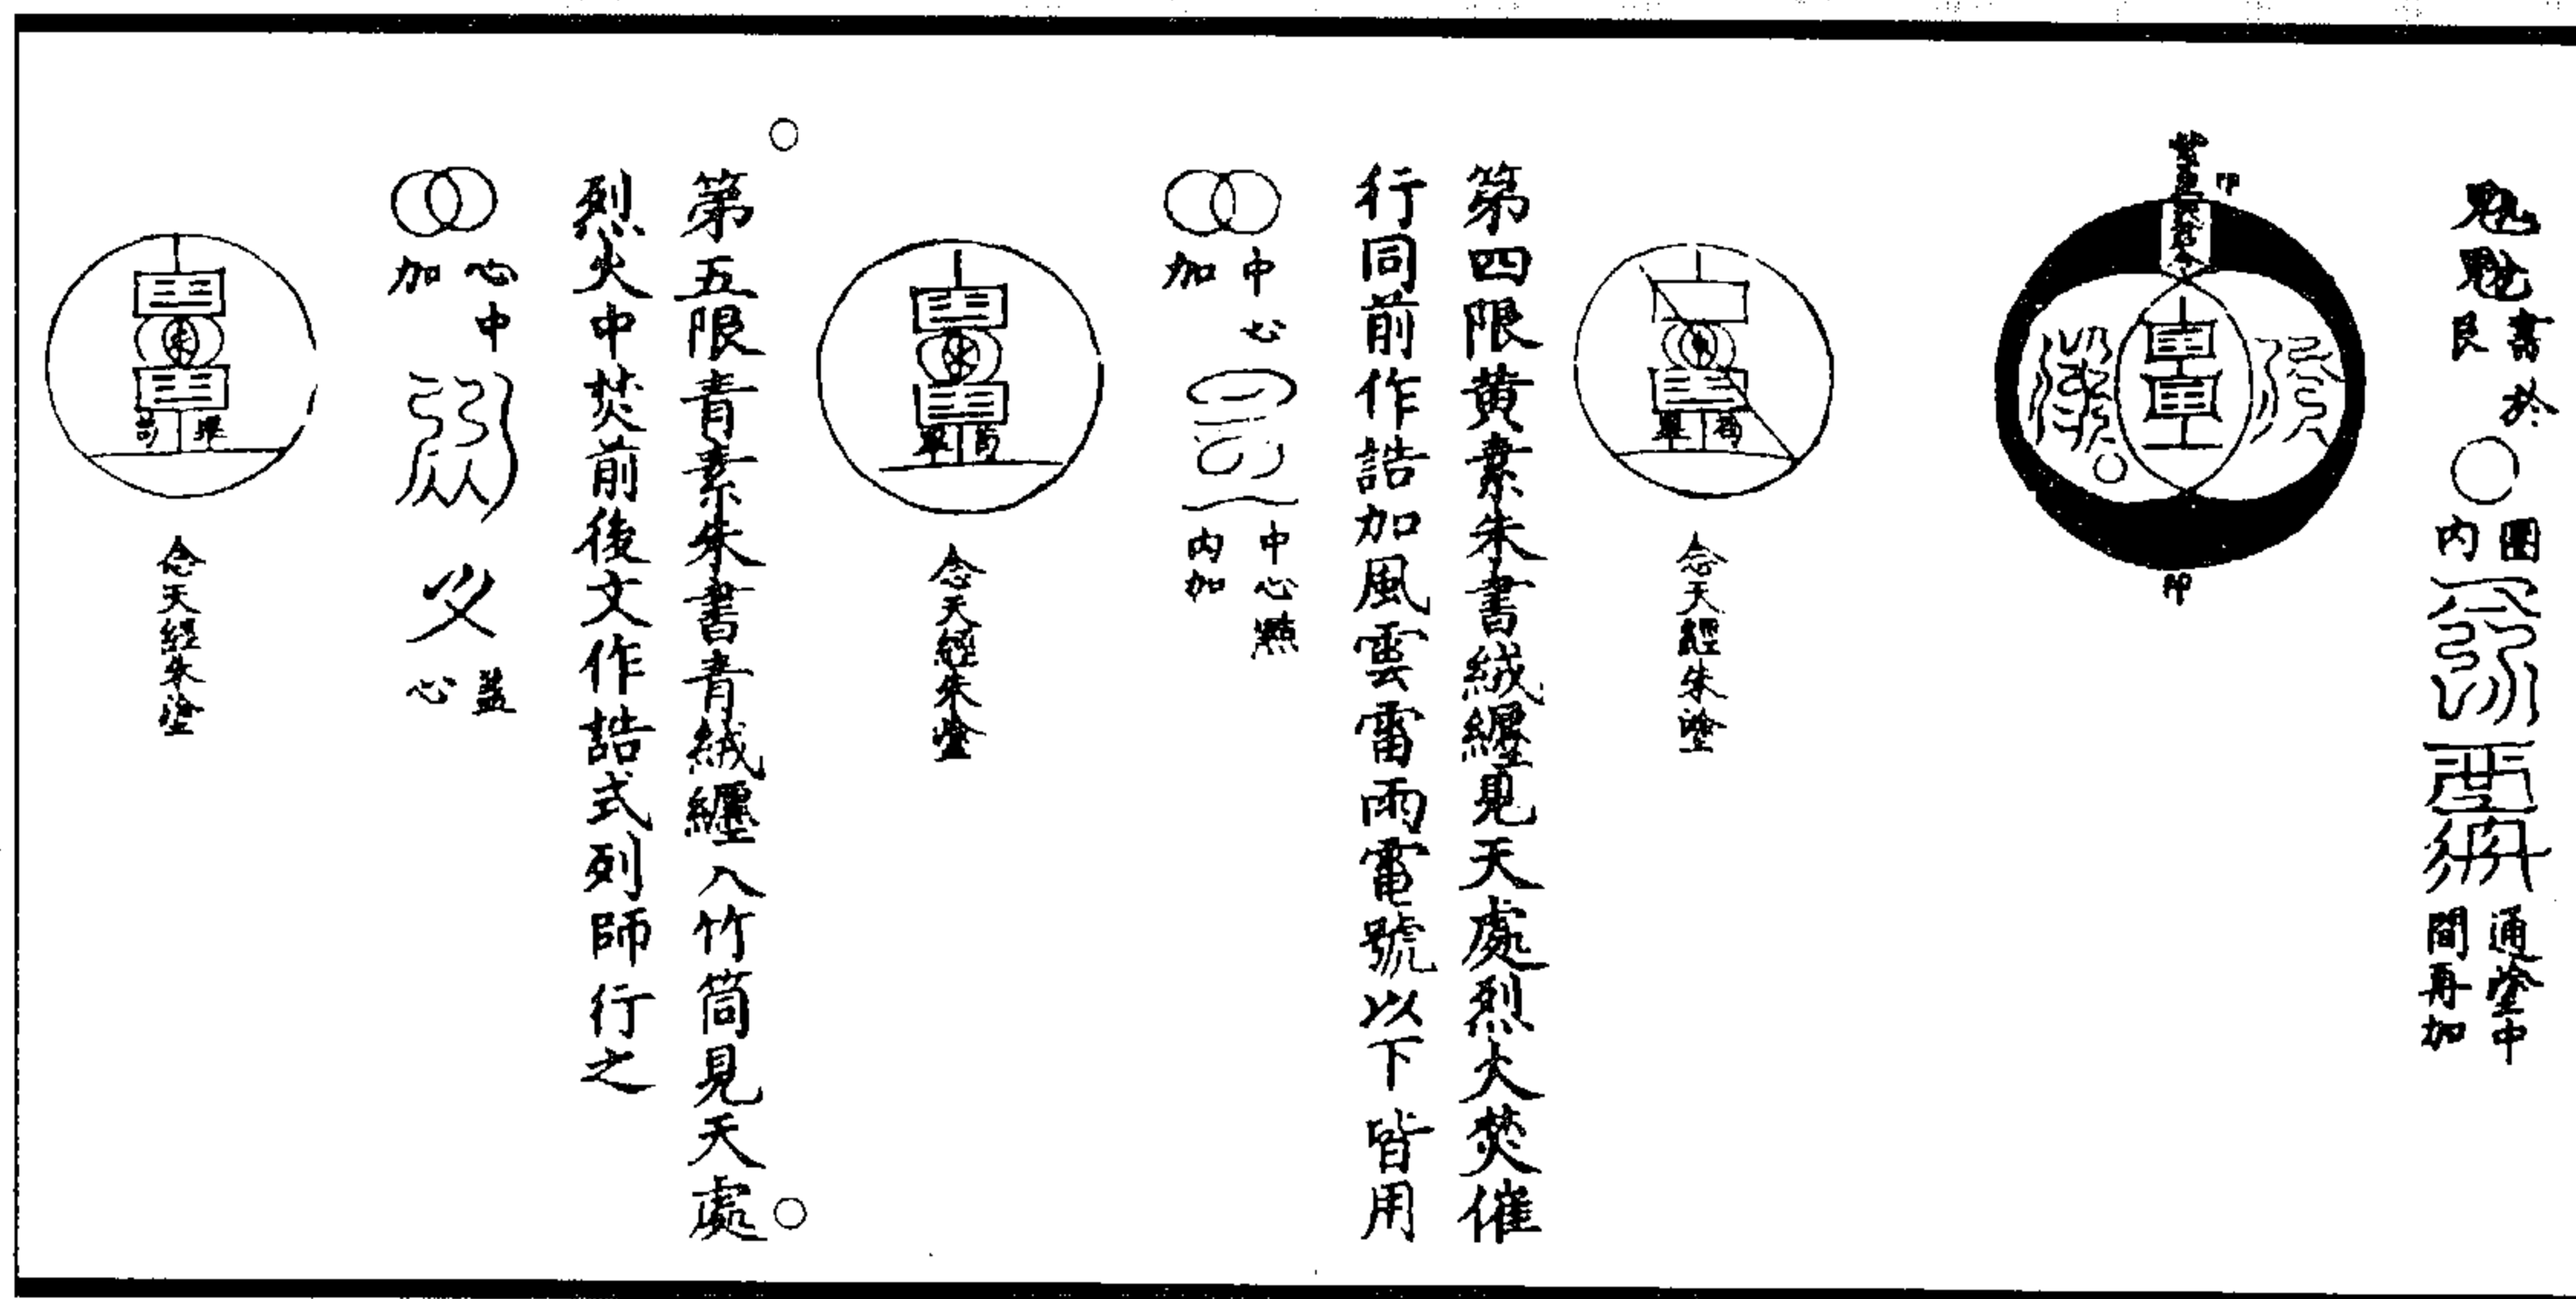 書於
艮
圍
内
通塗中
間再加
印
印
念天經朱塗
第四限黄素朱書絨纏見天處烈火焚催
行同前作誥加風雲雷雨電號以下皆用
中心
加
中心點
内加
念天經朱塗
第五限青素朱書青絨纏入竹筒見天處
烈火中焚前後文作誥式列師行之
心中
加
蓋
心
念天經朱塗